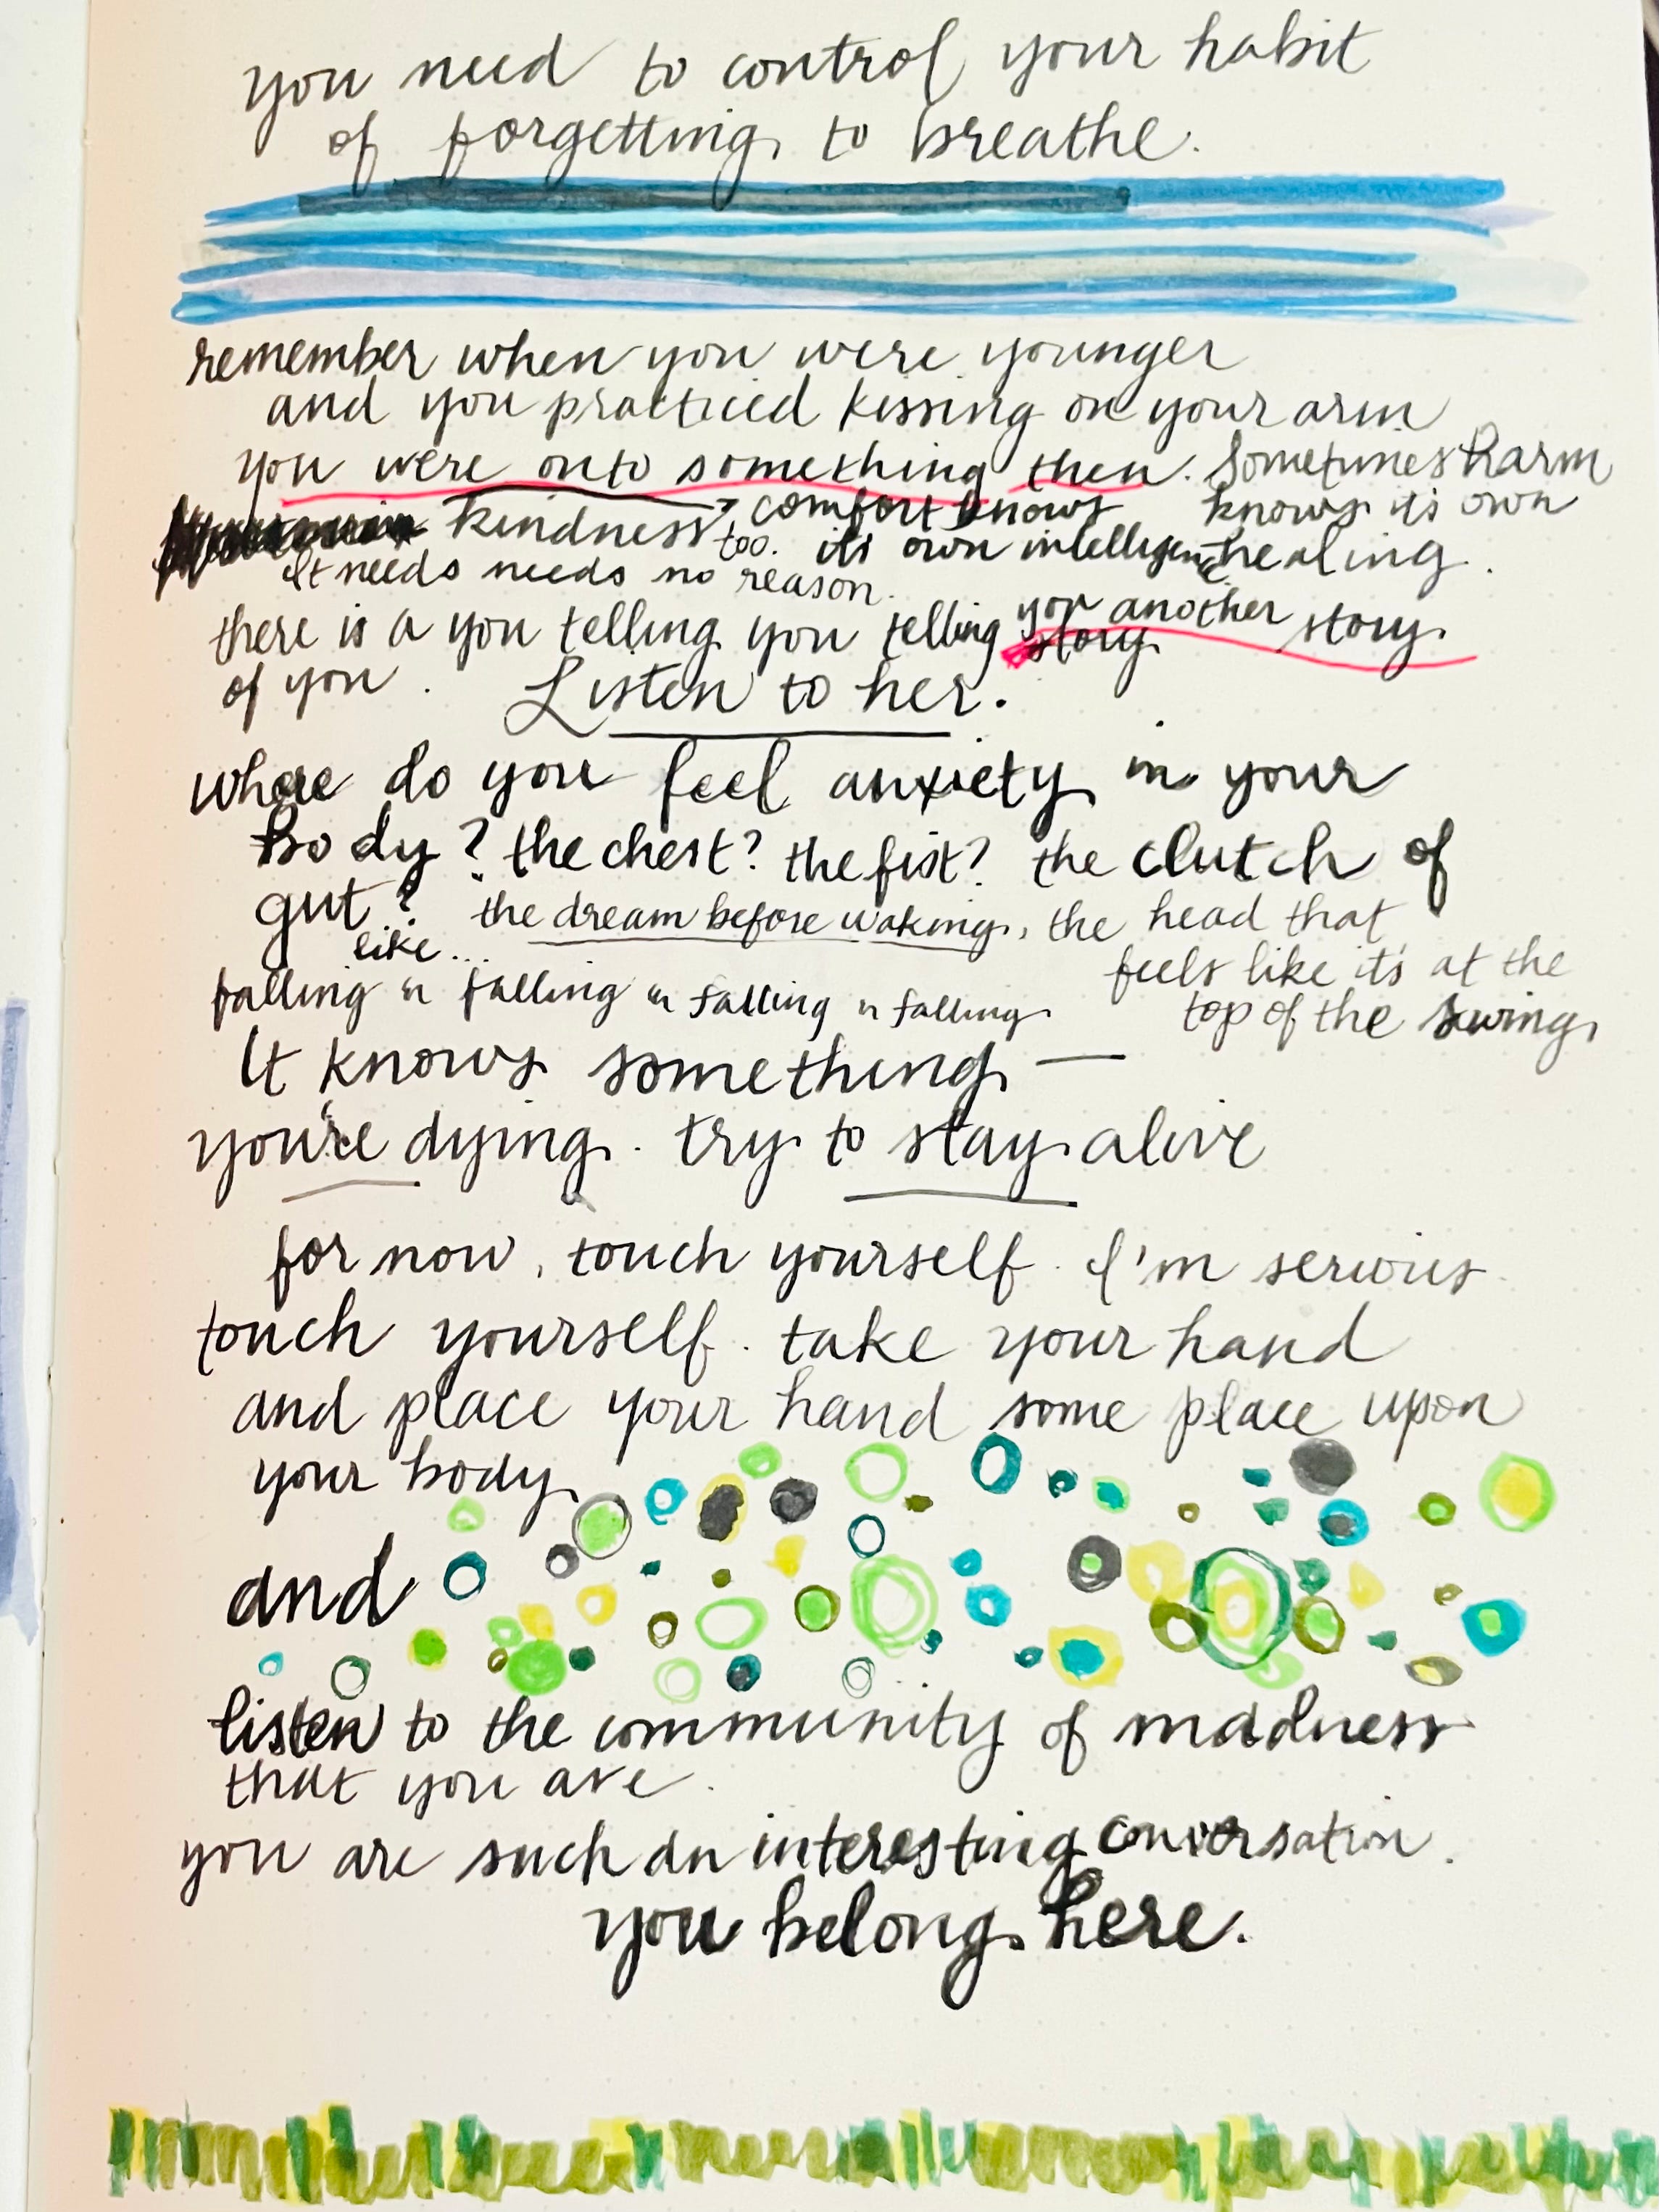 you need to control your habit
of forgetting to breathe.
remember when you were younger
and you practiced kissing on your arm
you were onto something then. Sometimes harm
knows its own
healing.
kindness too.
comfort knows
its own intelligence
It needs needs no reason.
there is a you telling you telling story
you another story.
of you. Listen to her.
where do you feel anxiety in your
body? the chest? the fist? the clutch of
gut? the dream before waking, the head that
feels like it's at the
top of the swing
like...
falling n falling n falling n falling.
It knows something —
you're dying. try to stay alive
for now, touch yourself. I'm serious.
touch yourself. take your hand
and place your hand some place upon
your body
and
listen to the community of madness
that you are.
you are such an interesting conversation.
you belong here.